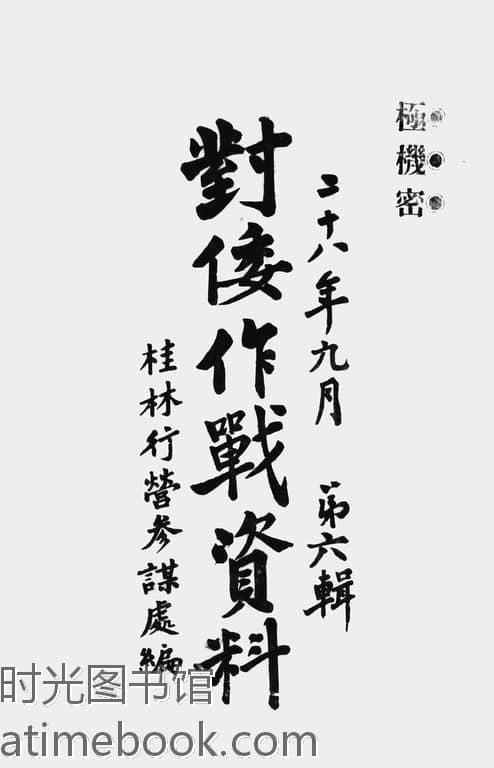 極機密
二十八年九月 第六輯
對倭作戰資料
桂林行營參謀處編
时光图书馆
atimebook.com